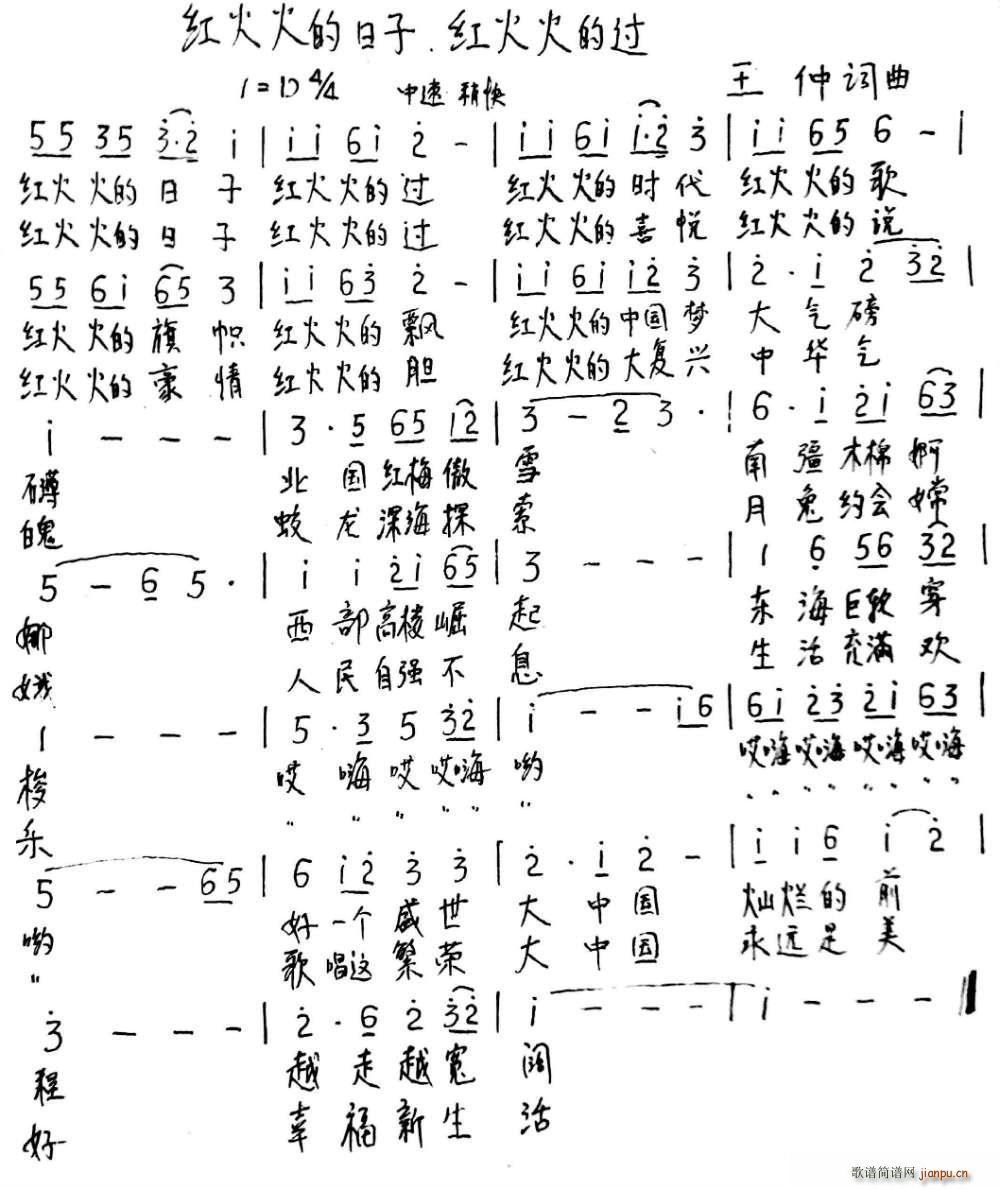 红火火的日子.红火火的过
1=D 4/4 中速 稍快 王 仲 词 曲
5 5 3 5 3·2 i | i i 6 i 2 - | i i 6 i i·2 3 | i i 6 5 6 - |
红火火的日子 红火火的过 红火火的时代 红火火的歌
红火火的日子 红火火的过 红火火的喜悦 红火火的说
5 5 6 i 6 5 3 | i i 6 3 2 - | i i 6 i i 2 3 | 2 · i 2 3 2 |
红火火的旗帜 红火火的飘 红火火的中国梦 大气磅
红火火的豪情 红火火的胆 红火火的大复兴 中华气
i - - - | 3 · 5 6 5 i 2 | 3 - 2 3 · | 6 · i 2 i 6 3 |
礴 北国红梅傲雪 南疆木棉婀
魄 蛟龙深海探索 月兔约会嫦
5 - 6 5 · | i i 2 i 6 5 | 3 - - - | 1 6 5 6 3 2 |
娜 西部高楼崛起 东海巨软穿
娥 人民自强不息 生活充满欢
1 - - - | 5 · 3 5 3 2 | i - - i 6 | 6 i 2 3 2 i 6 3 |
梭 哎嗨哎哎嗨哟 哎嗨哎嗨哎嗨哎嗨
乐 " " " " " " " " " " " " " "
5 - - 6 5 | 6 i 2 3 3 | 2 · i 2 - | i i 6 i 2 |
哟 好一个盛世 大中国 灿烂的前
" 歌唱这繁荣 大中国 永远是美
3 - - - | 2 · 6 2 3 2 | i - - - | i - - - ‖
程 越走越宽阔
好 幸福新生活
歌谱简谱网 jianpu.cn